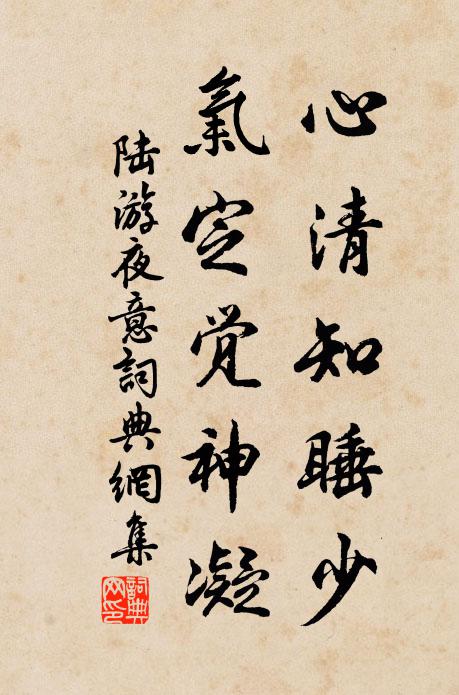 心清知睡少
氣定觉神凝
陆游夜意詞典網集
詞典网印